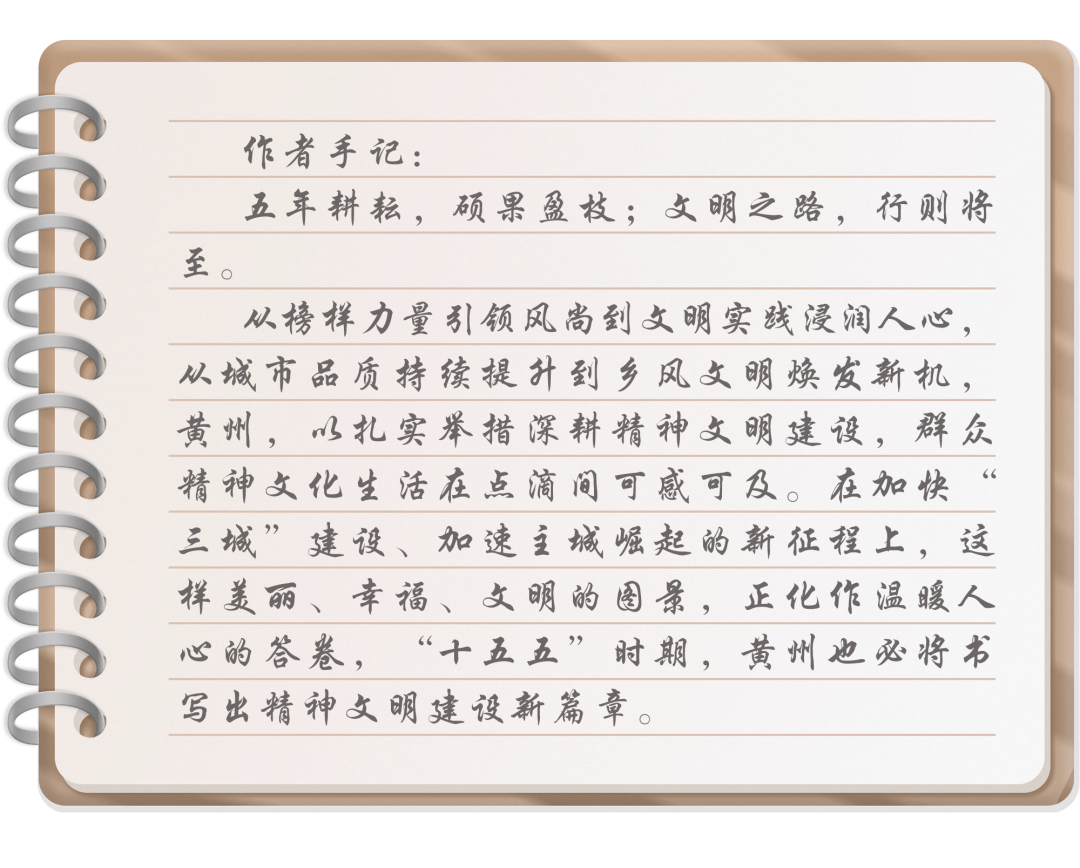 作者手记：
五年耕耘，硕果盈枝；文明之路，行则将
至。
从榜样力量引领风尚到文明实践浸润人心，
从城市品质持续提升到乡风文明焕发新机，
黄州，以扎实举措深耕精神文明建设，群众
精神文化生活在点滴间可感可及。在加快“
三城”建设、加速主城崛起的新征程上，这
样美丽、幸福、文明的图景，正化作温暖人
心的答卷，“十五五”时期，黄州也必将书
写出精神文明建设新篇章。